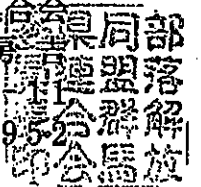 部落解放
同盟群馬
県連合会
印
合会
-11
952